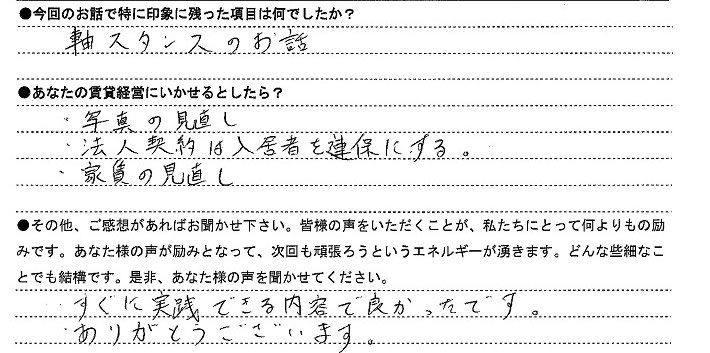 ●今回のお話で特に印象に残った項目は何でしたか？
軸スタンスのお話
●あなたの賃貸経営にいかせるとしたら？
・写真の見直し
・法人契約は入居者を連保にする。
・家賃の見直し
●その他、ご感想があればお聞かせ下さい。皆様の声をいただくことが、私たちにとって何よりもの励
みです。あなた様の声が励みとなって、次回も頑張ろうというエネルギーが湧きます。どんな些細なこ
とでも結構です。是非、あなた様の声を聞かせてください。
・すぐに実践できる内容で良かったです。
・ありがとうございます。